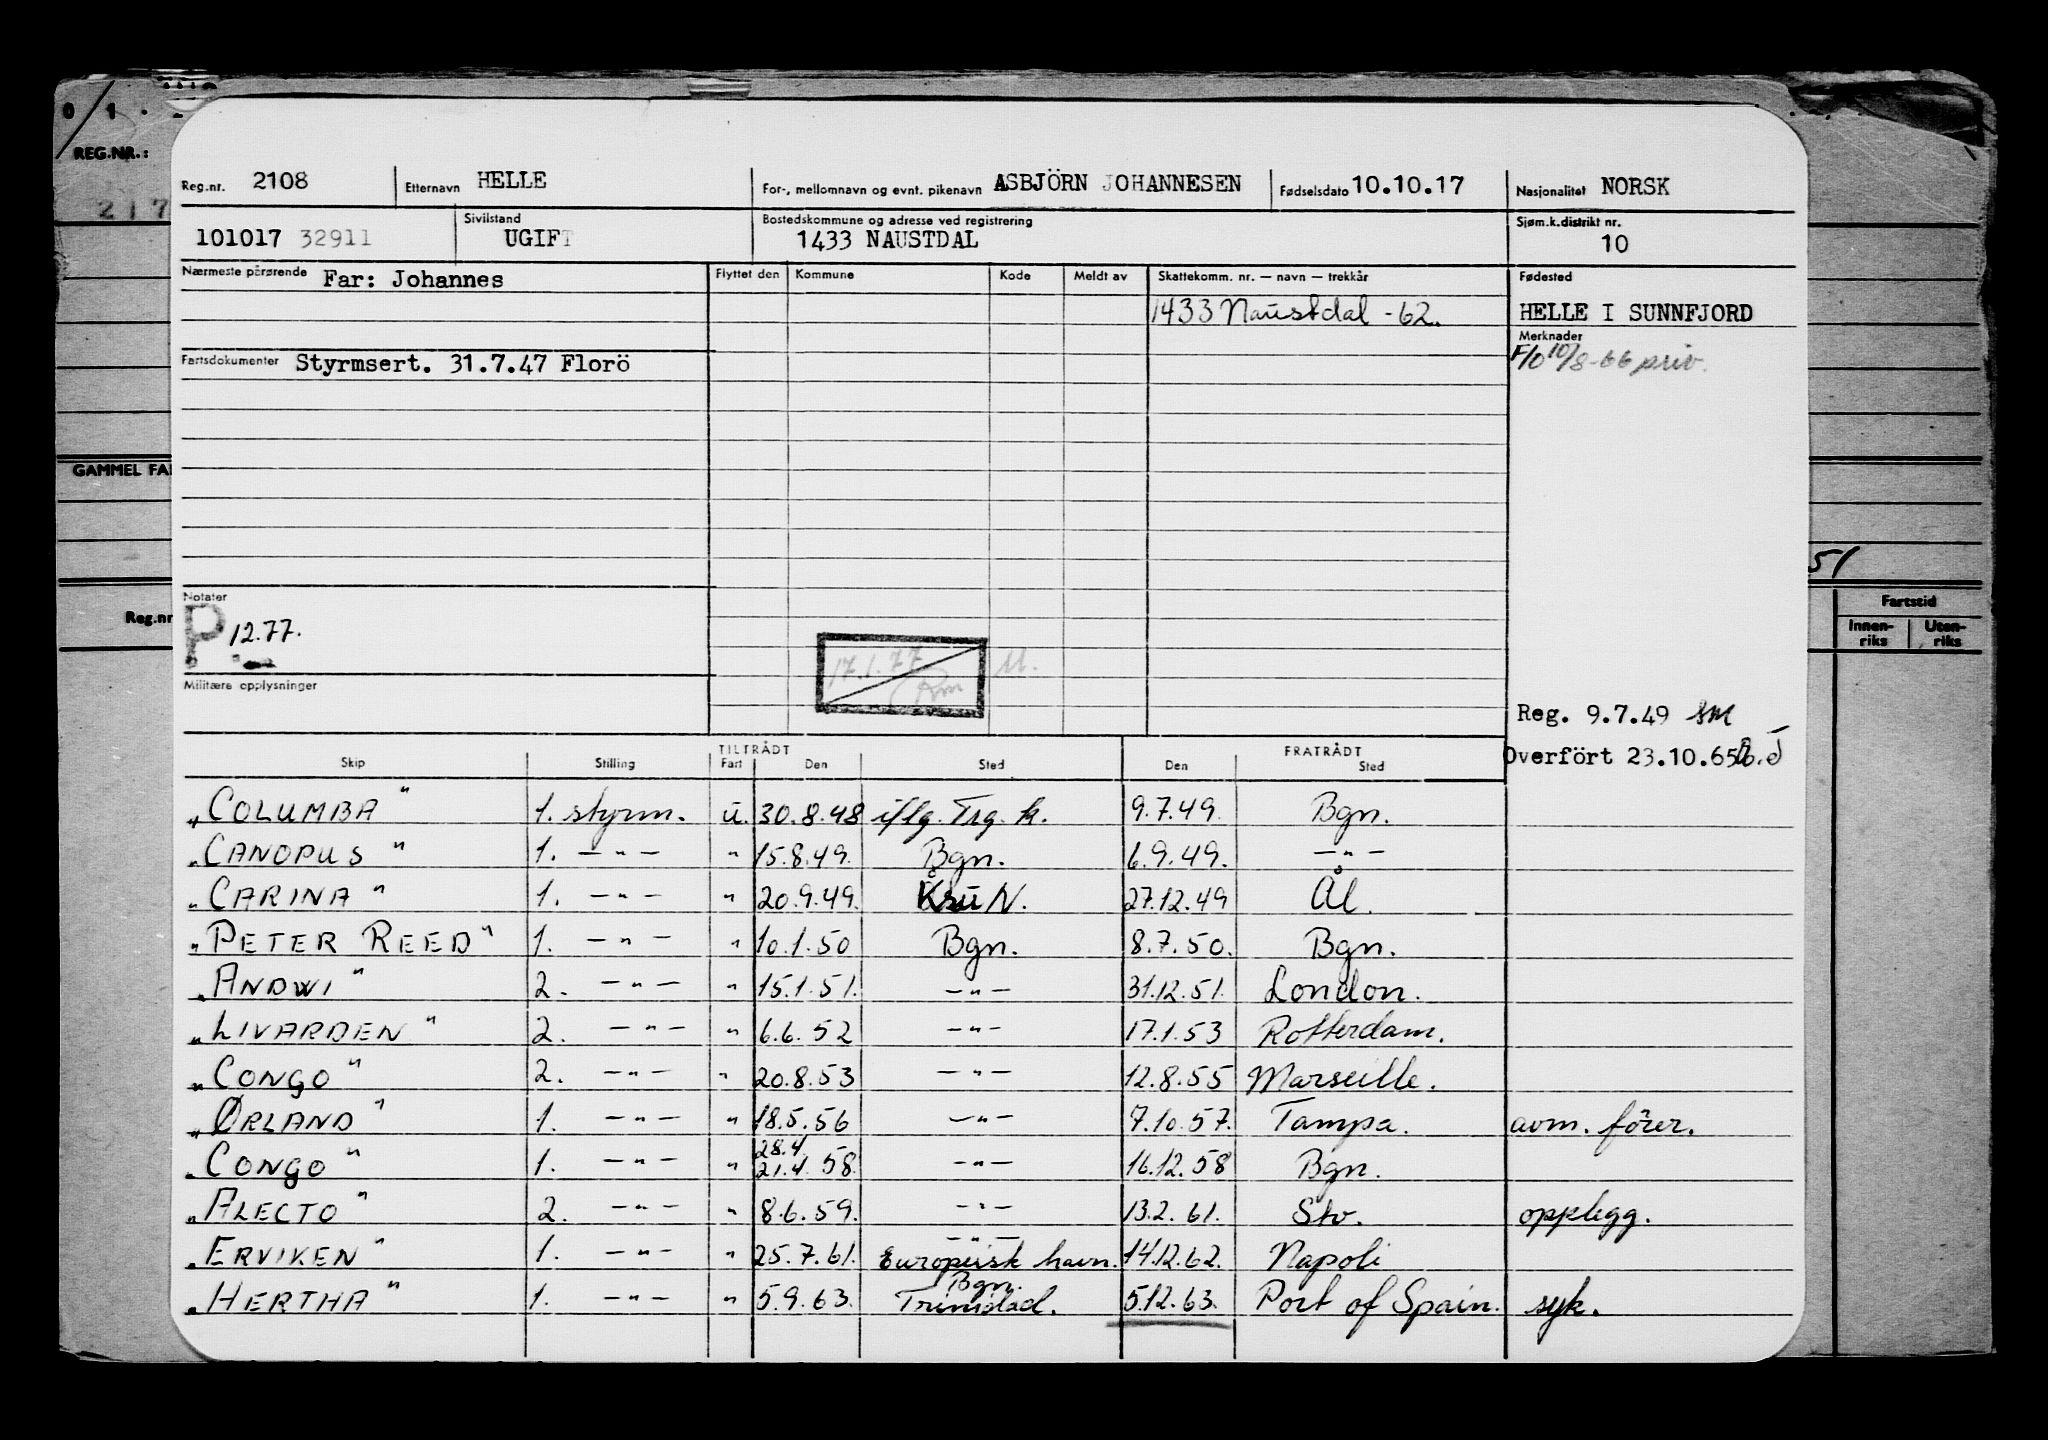 0/1.
REG.NR.:
217
GAMMEL FA
Reg.nr
Reg.nr. 2108 Etternavn HELLE For-, mellomnavn og evnt. pikenavn ASBJÖRN JOHANNESEN Fødselsdato 10.10.17 Nasjonalitet NORSK
101017 32911 Sivilstand UGIFT Bostedskommune og adresse ved registrering 1433 NAUSTDAL Sjøm.k.distrikt nr. 10
Nærmeste pårørende Far: Johannes Flyttet den Kommune Kode Meldt av Skattekomm. nr. — navn — trekkår Fødested
1433 Naustdal -62. HELLE I SUNNFJORD
Merknader
Fartsdokumenter Styrmsert. 31.7.47 Florö F/o 10/8-66 priv.
51
Notater
P 12.77.
17.1.77
Militære opplysninger
Fartstid
Innen-riks Uten-riks
Reg. 9.7.49 SM
Overfört 23.10.65
TILTRÅDT FRATRÅDT
Skip Stilling Fart Den Sted Den Sted
"COLUMBA" 1. styrm. u. 30.8.48 iflg. Trg. k. 9.7.49. Bgn.
"CANOPUS" 1. —"— " 15.8.49. Bgn. 6.9.49. —"—
"CARINA" 1. —"— " 20.9.49. Krsu N. 27.12.49 Ål.
"PETER REED" 1. —"— " 10.1.50 Bgn. 8.7.50. Bgn.
"ANDWI" 2. —"— " 15.1.51. —"— 31.12.51. London.
"LIVARDEN" 2. —"— " 6.6.52 —"— 17.1.53 Rotterdam.
"CONGO" 2. —"— " 20.8.53 —"— 12.8.55 Marseille.
"ØRLAND" 1. —"— " 18.5.56 —"— 7.10.57. Tampa. avm. förer.
28.4
"CONGO" 1. —"— " 21.4.58. —"— 16.12.58 Bgn.
"ALECTO" 2. —"— " 8.6.59. —"— 13.2.61. Stv. opplegg.
—"—
"ERVIKEN" 1. —"— " 25.7.61. Europeisk havn. 14.12.62. Napoli
Bgn.
"HERTHA" 1. —"— " 5.9.63. Trinidad. 5.12.63. Port of Spain. syk.